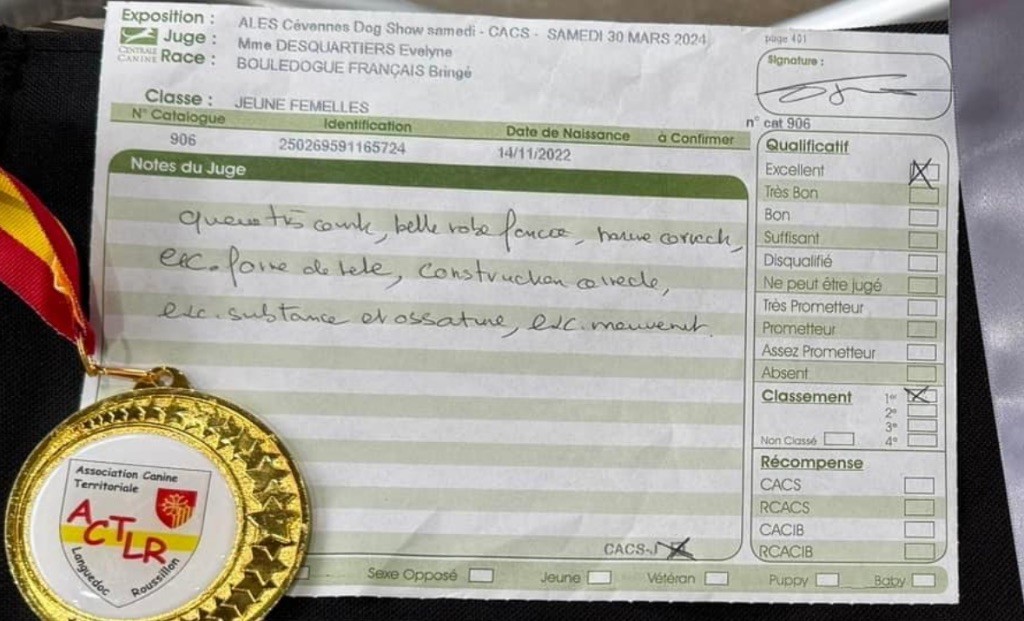 Exposition : ALES Cévennes Dog Show samedi - CACS - SAMEDI 30 MARS 2024
page 401
CENTRALE CANINE
Juge : Mme DESQUARTIERS Evelyne
Race : BOULEDOGUE FRANÇAIS Bringé
Signature :
Classe : JEUNE FEMELLES
n° cat 906
N° Catalogue Identification Date de Naissance à Confirmer
906 250269591165724 14/11/2022
Notes du Juge
belle robe
exc. forme de tete, construction correcte,
exc. substance et ossature, exc. mouvement.
Qualificatif
Excellent
Très Bon
Bon
Suffisant
Disqualifié
Ne peut être jugé
Très Prometteur
Prometteur
Assez Prometteur
Absent
Classement 1er
2e
3e
Non Classé 4e
Récompense
CACS
RCACS
CACIB
RCACIB
CACS-J
Sexe Opposé Jeune Vétéran Puppy Baby
Association Canine
Territoriale
ACTLR
Languedoc
Roussillon